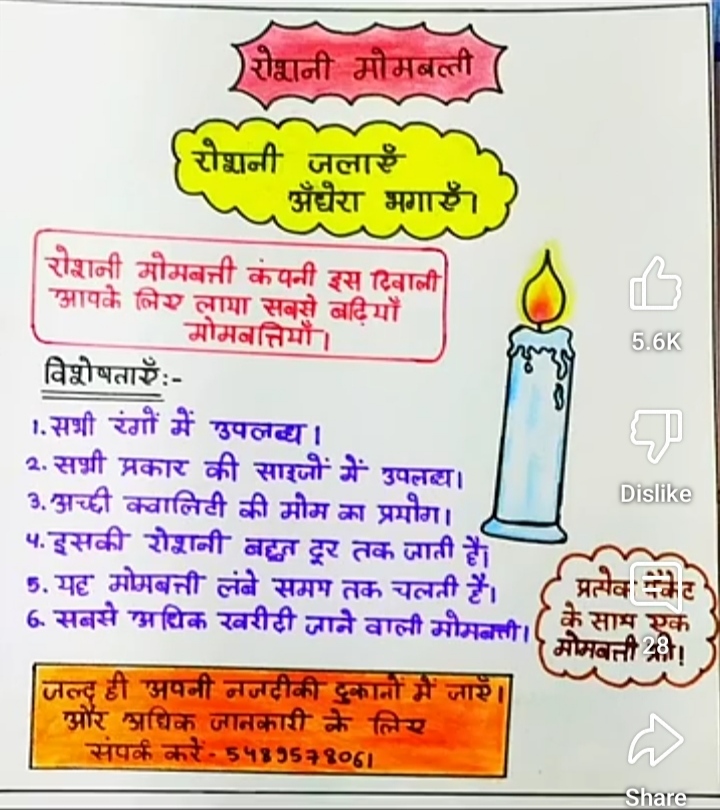 रोशनी मोमबत्ती
रोशनी जलाएँ
अँधेरा भगाएँ।
रोशनी मोमबत्ती कंपनी इस दिवाली
आपके लिए लाया सबसे बढ़ियाँ
मोमबत्तियाँ।
विशेषताएँ:-
1. सभी रंगों में उपलब्ध।
2. सभी प्रकार की साइजों में उपलब्ध।
3. अच्छी क्वालिटी की मोम का प्रयोग।
4. इसकी रोशनी बहुत दूर तक जाती है।
5. यह मोमबत्ती लंबे समय तक चलती है।
6. सबसे अधिक खरीदी जाने वाली मोमबत्ती।
प्रत्येक पैकेट
के साथ एक
मोमबत्ती फ्री!
जल्द ही अपनी नजदीकी दुकानों में जाएँ।
और अधिक जानकारी के लिए
संपर्क करें - 5489578061
5.6K
Dislike
28
Share